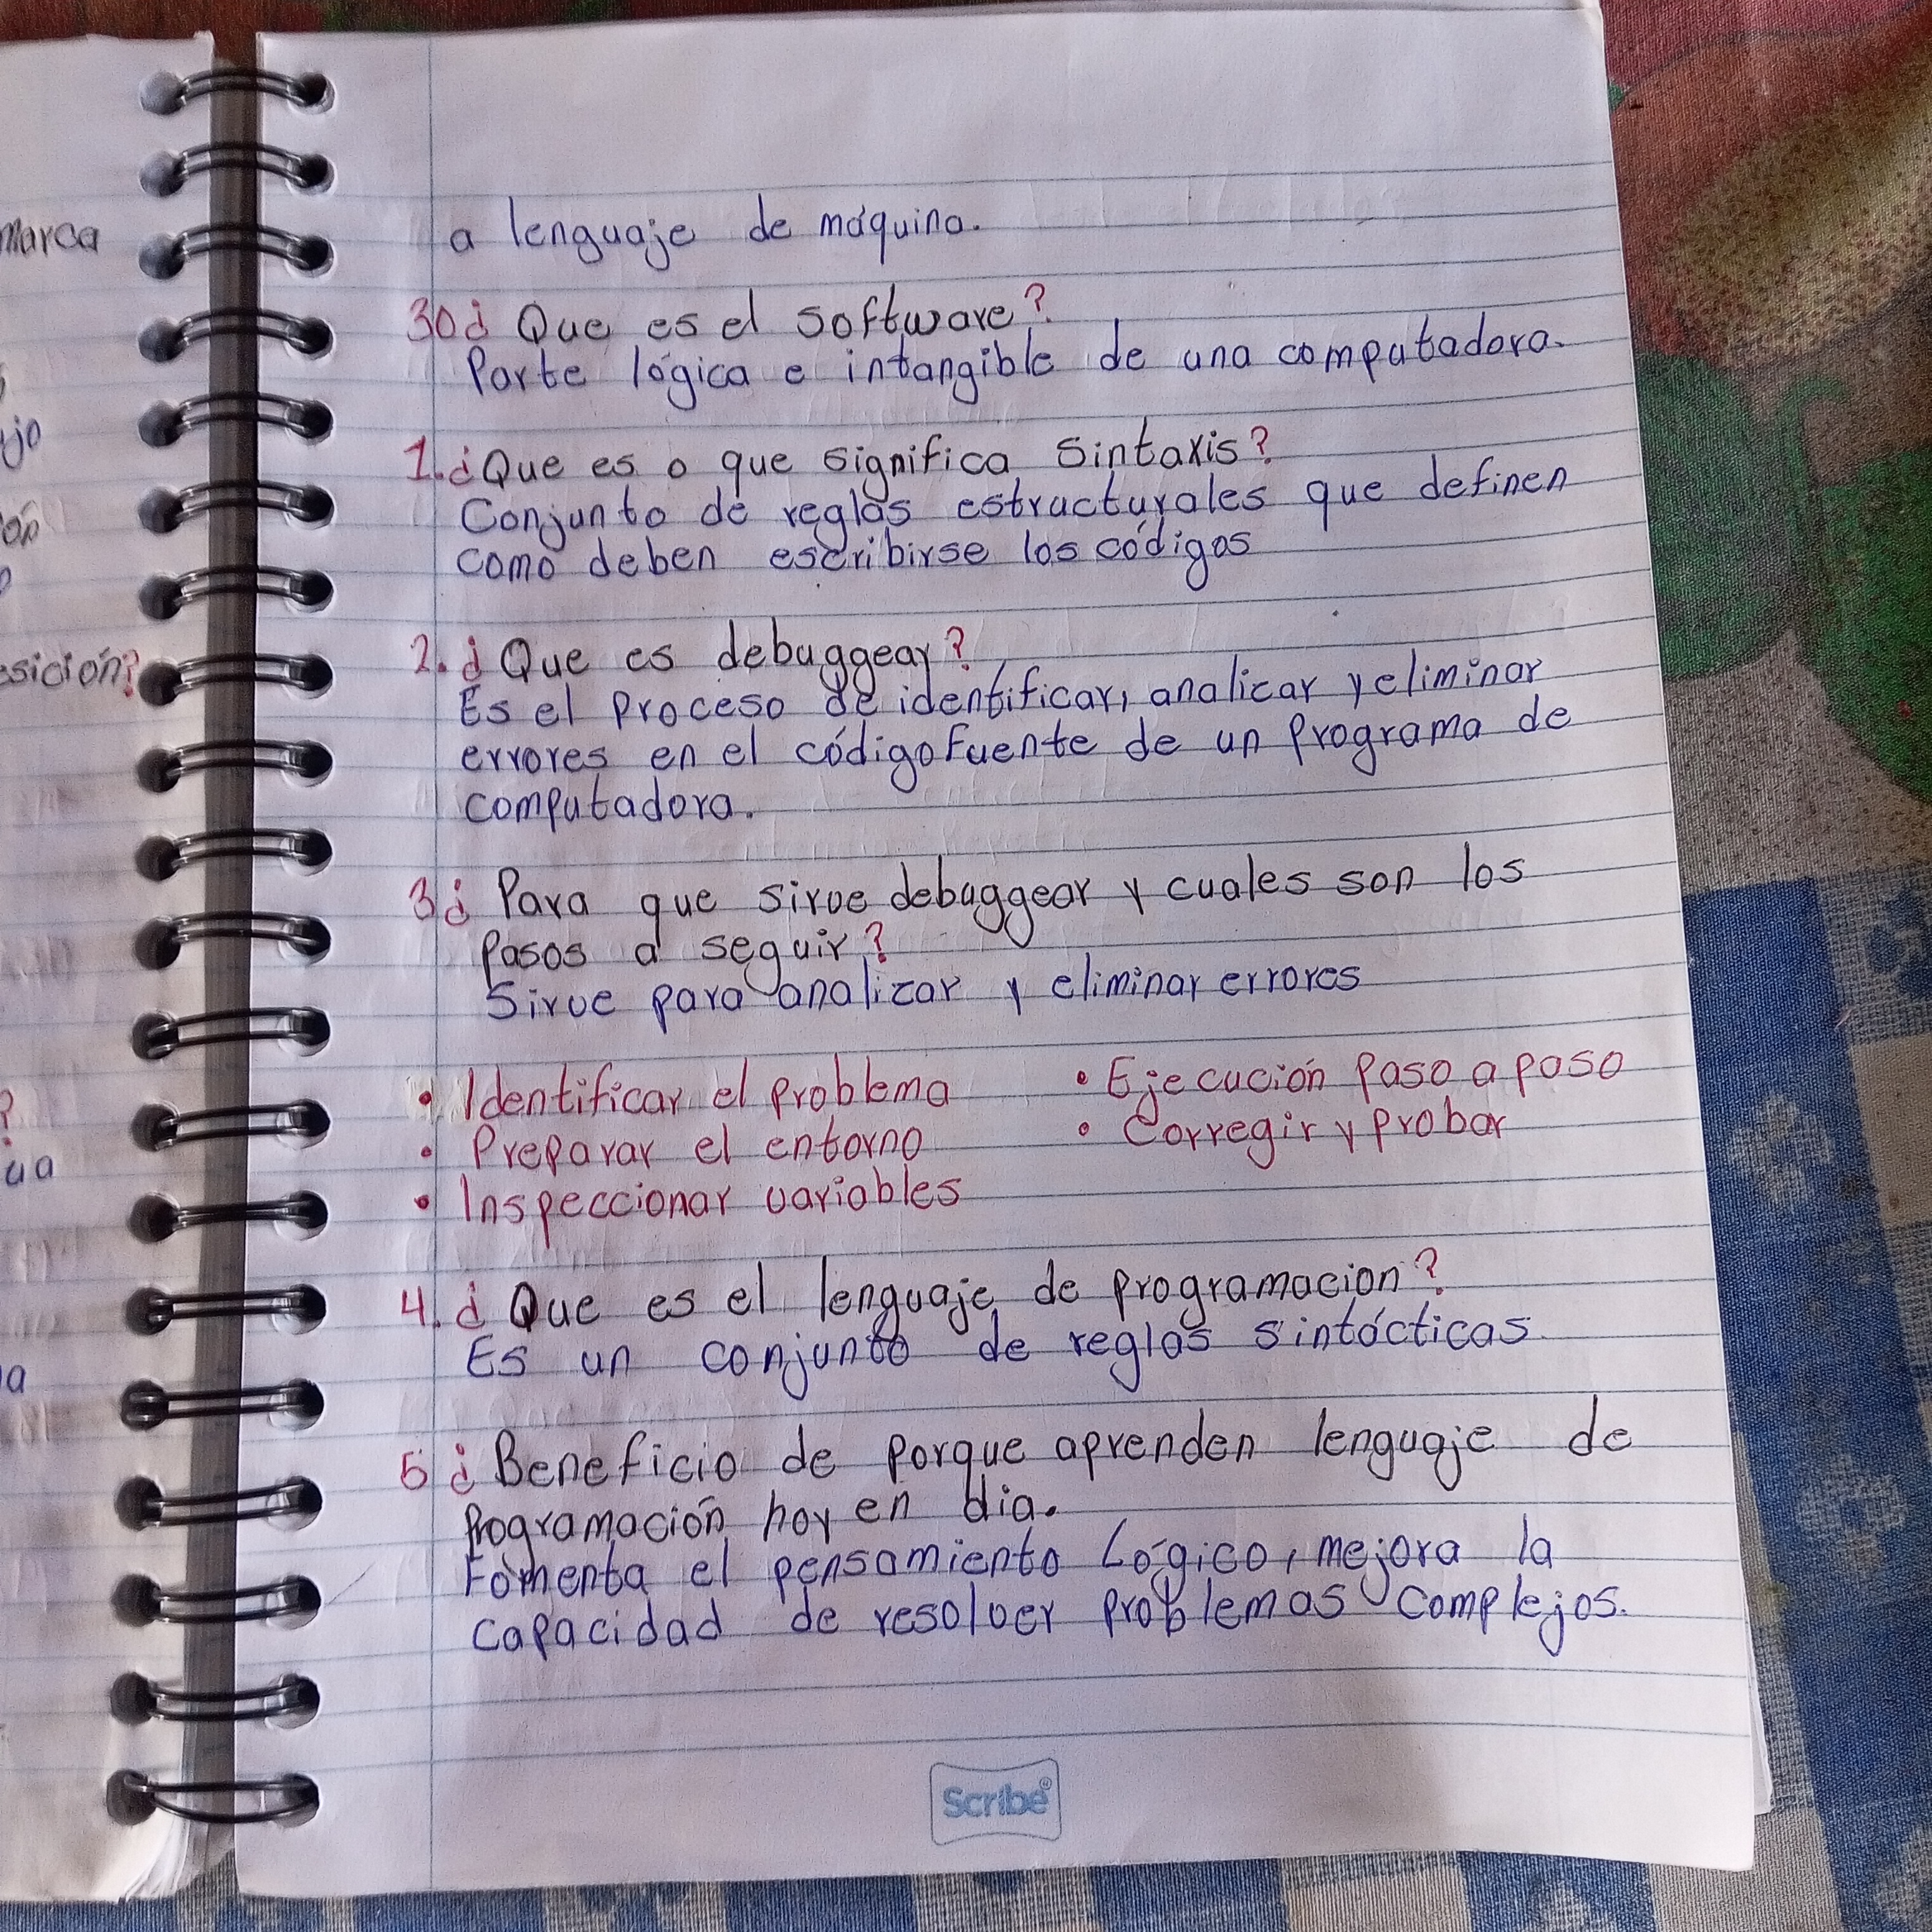 marca
ua
a lenguaje de máquina.
30¿ Que es el software?
Parte lógica e intangible de una computadora.
1.¿Que es o que significa sintaxis?
Conjunto de reglas estructurales que definen
como deben escribirse los códigos
2.¿ Que es debuggear?
Es el proceso de identificar, analicar y eliminar
errores en el código fuente de un programa de
computadora.
3¿ Para que sirve debuggear y cuales son los
pasos a seguir?
Sirve para analizar y eliminar errores
• Identificar el problema • Ejecución paso a paso
• Preparar el entorno • Corregir y probar
• Inspeccionar variables
4.¿ Que es el lenguaje de programacion?
Es un conjunto de reglas sintácticas
5¿ Beneficio de porque aprenden lenguaje de
programación hoy en dia.
Fomenta el pensamiento Lógico, mejora la
capacidad de resolver problemas complejos.
Scribe®